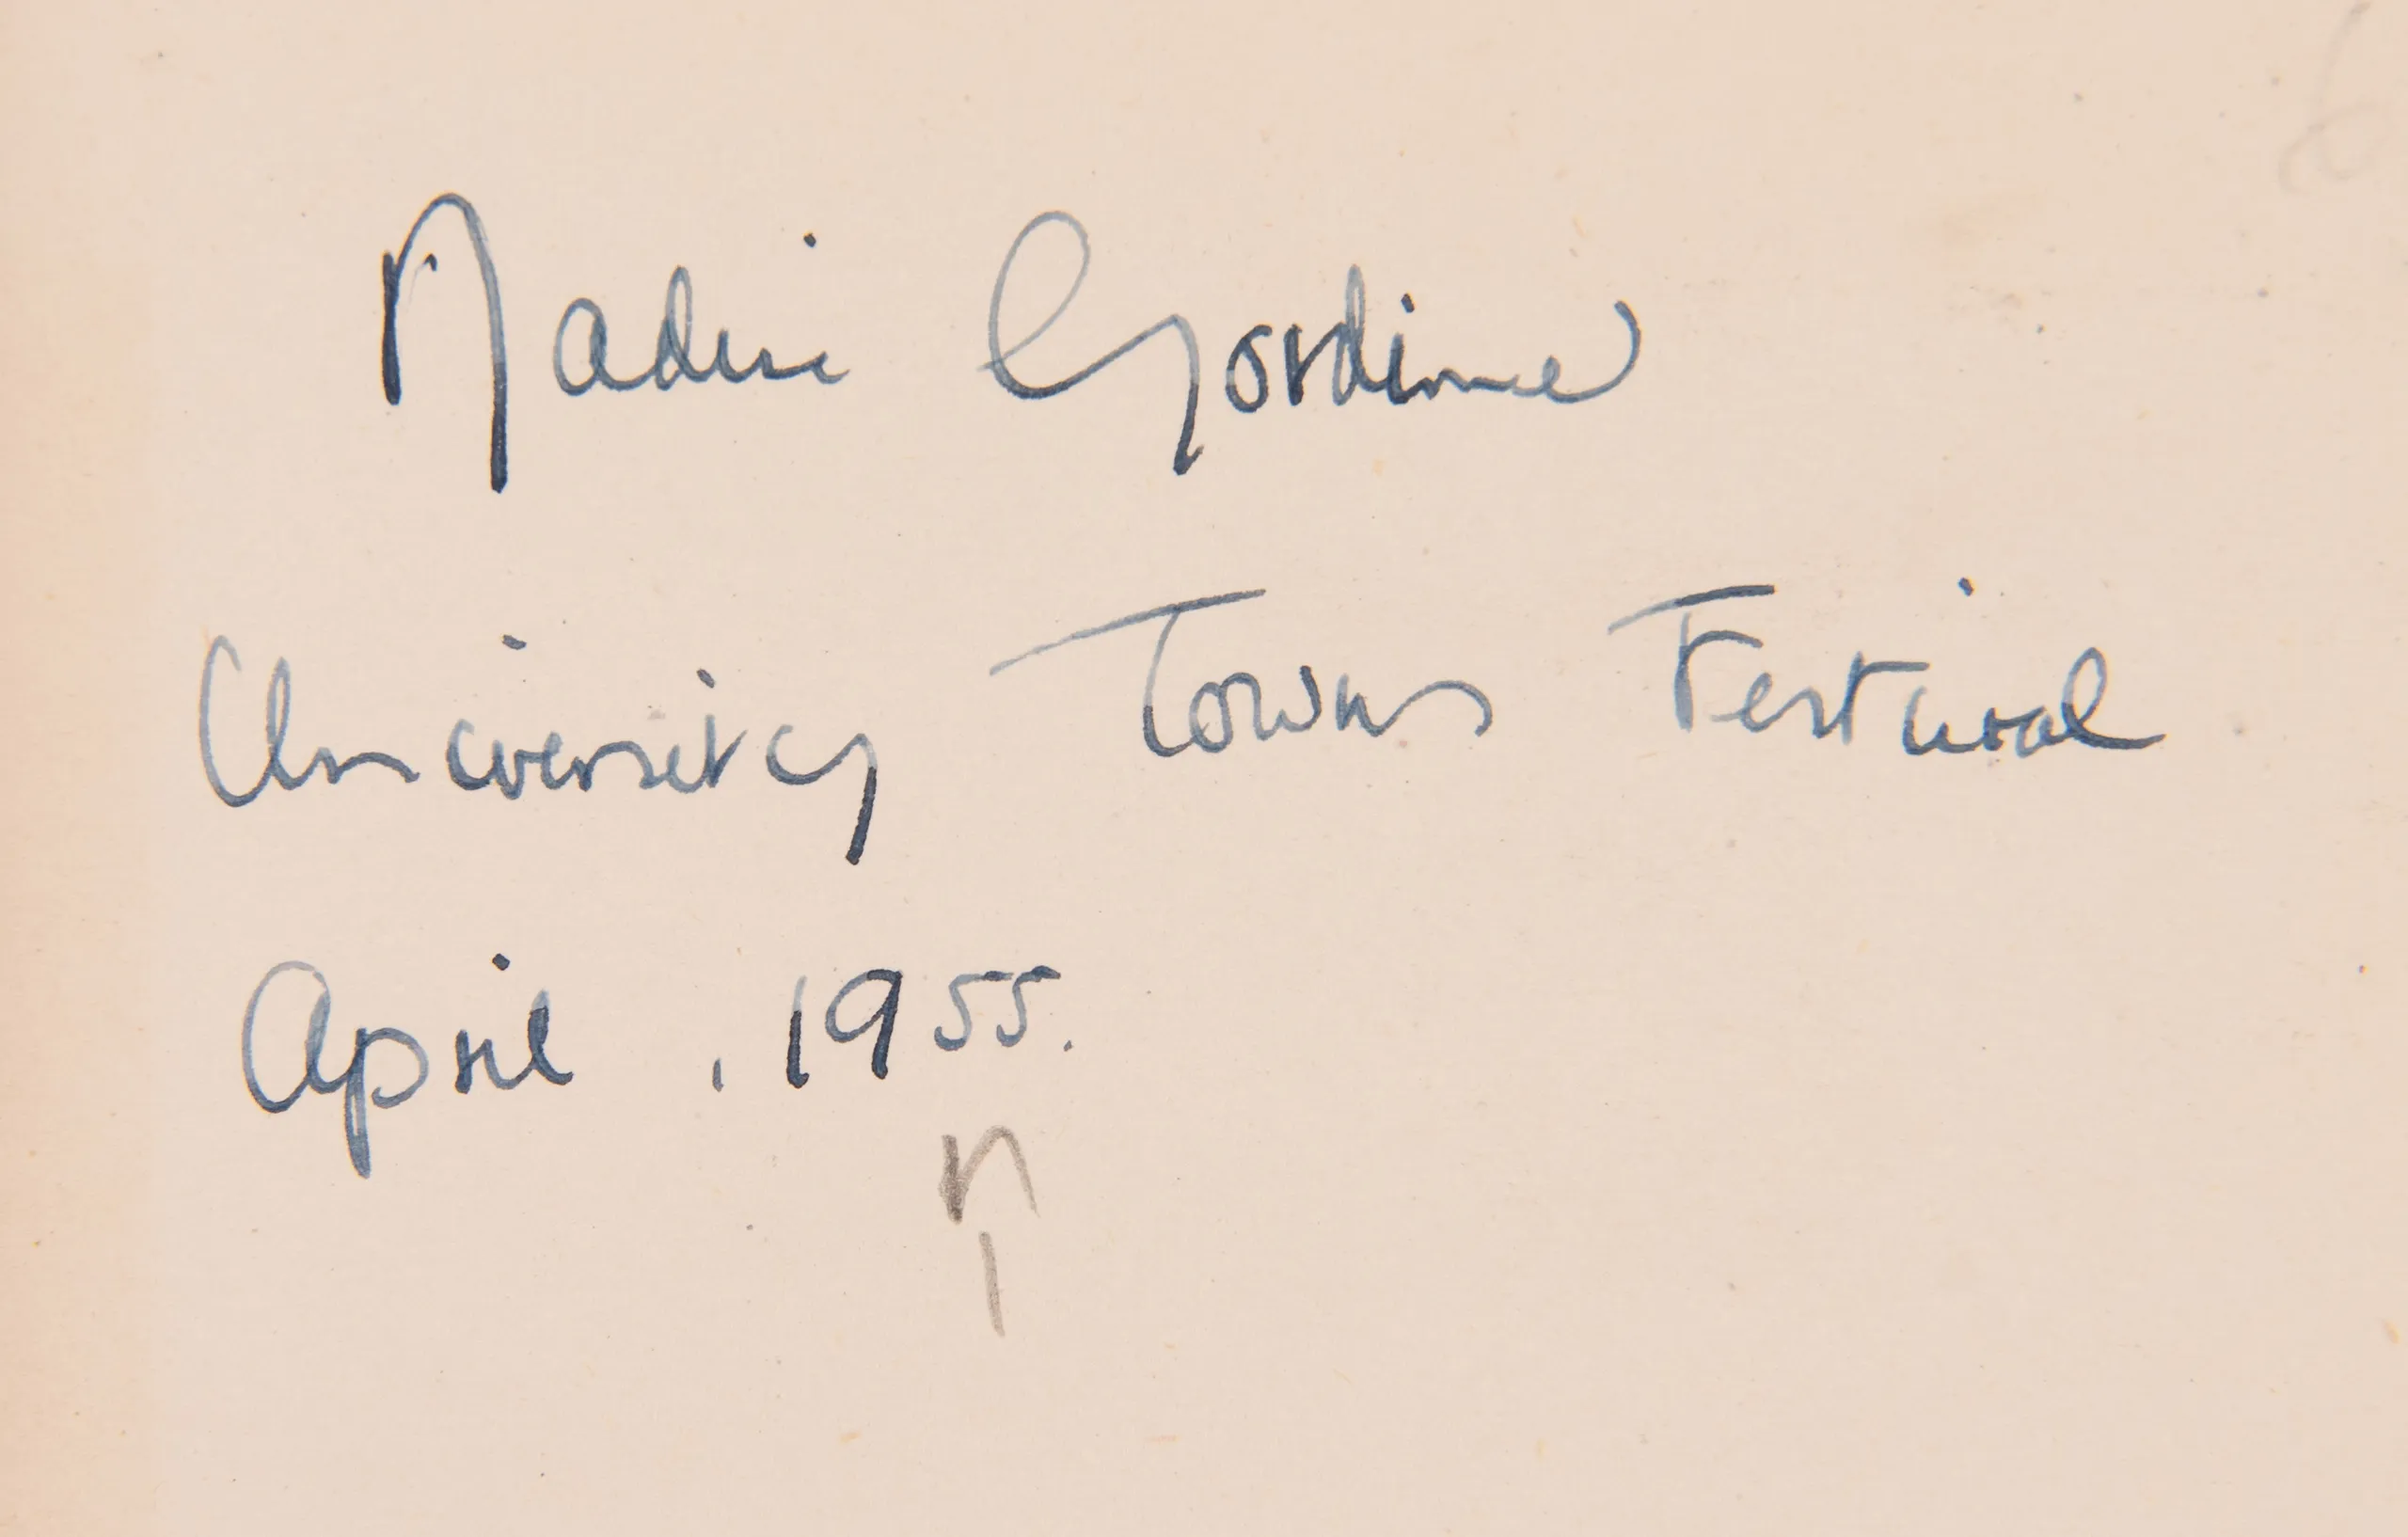 Nadine Gordimer
University Towns Festival
April . 1955.
n